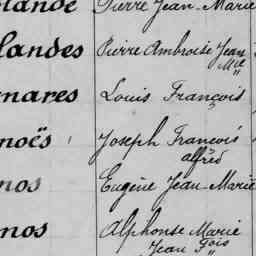 lande Pierre Jean-Marie
landes Pierre Ambroise Jean
Mie
mares Louis François
noës Joseph François
alfred
nos Eugène Jean-Marie
nos Alphonse Marie
Jean Fois